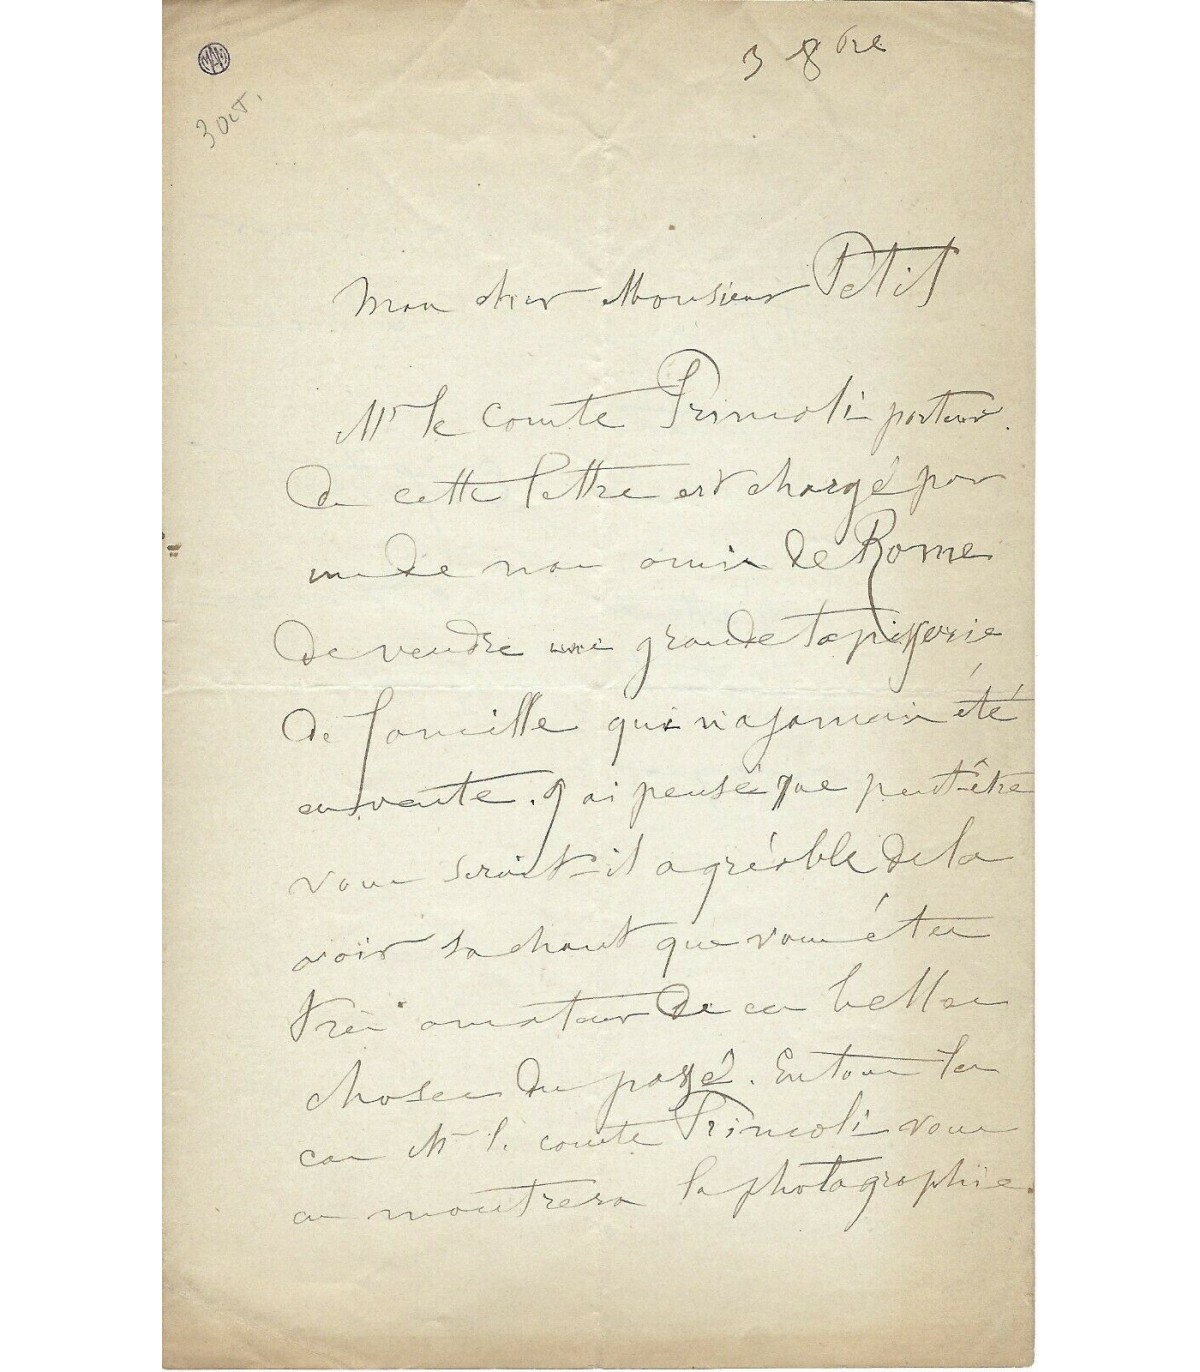 3 8bre
3 oct.
Mon cher Monsieur Petit
Mr le comte Primoli porteur
de cette lettre est chargé par
un de nos amis de Rome
de vendre une grande tapisserie
de famille qui n'a jamais été
en vente. J'ai pensé que peut-être
vous serait-il agréable de la
voir sachant que vous êtes
très amateur de ces belles
choses du passé. En tous les
cas Mr le comte Primoli vous
en montrera la photographie.